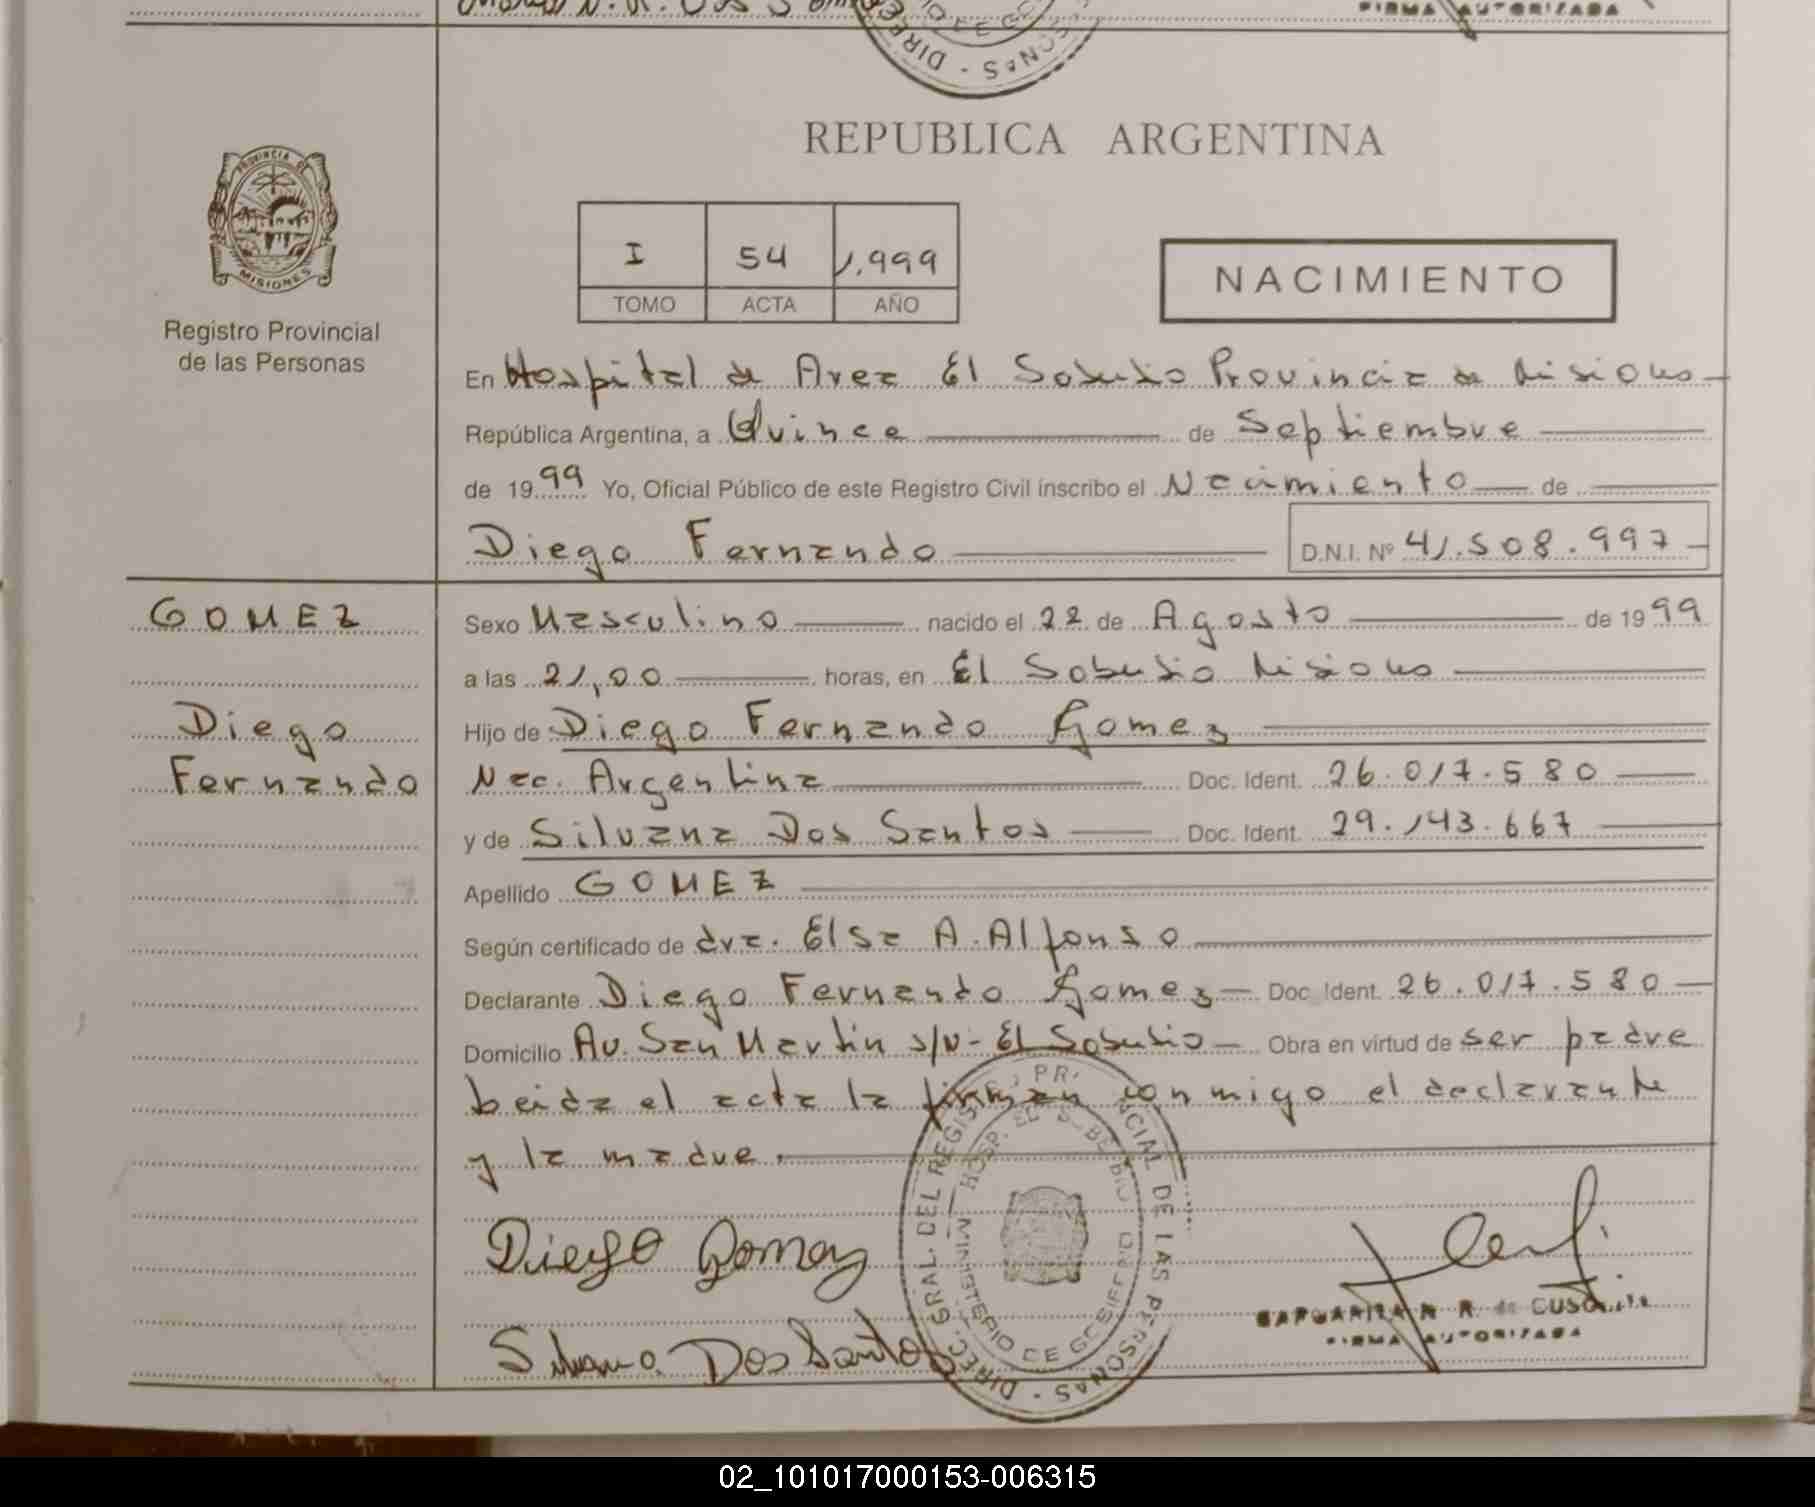 FIRMA AUTORIZADA
REPUBLICA ARGENTINA
PROVINCIA DE
MISIONES
Registro Provincial
de las Personas
I 54 1.999
TOMO ACTA AÑO
NACIMIENTO
En Hospital de Area El Soberbio Provincia de Misiones
República Argentina, a Quince de Septiembre
de 1999 Yo, Oficial Público de este Registro Civil inscribo el Nacimiento de
Diego Fernando D.N.I. Nº 41.508.997
GOMEZ
Diego
Fernando
Sexo Masculino nacido el 22 de Agosto de 1999
a las 21,00 horas, en El Soberbio Misiones
Hijo de Diego Fernando Gomez
Nac. Argentina Doc. Ident. 26.017.580
y de Silvana Dos Santos Doc. Ident. 29.143.667
Apellido GOMEZ
Según certificado de dra. Elsa A. Alfonso
Declarante Diego Fernando Gomez Doc. Ident. 26.017.580
Domicilio Av. San Martin s/n - El Soberbio Obra en virtud de ser padre
Leida el acta la firman conmigo el declarante
y la madre.
Diego Gomez
Silvana Dos Santos
FIRMA AUTORIZADA
02_101017000153-006315